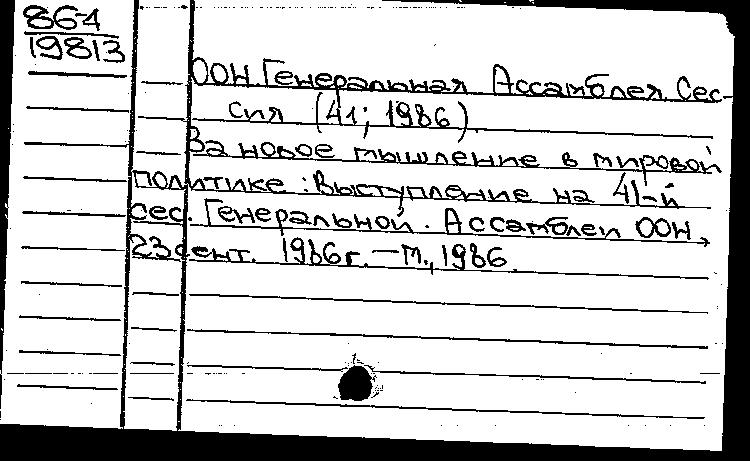 864
19813
ООН. Генеральная Ассамблея. Сес-
сия (41; 1986).
За новое мышление в мировой
политике: Выступление на 41-й
сес. Генеральной. Ассамблеи ООН,
23 сент. 1986г. — М., 1986.